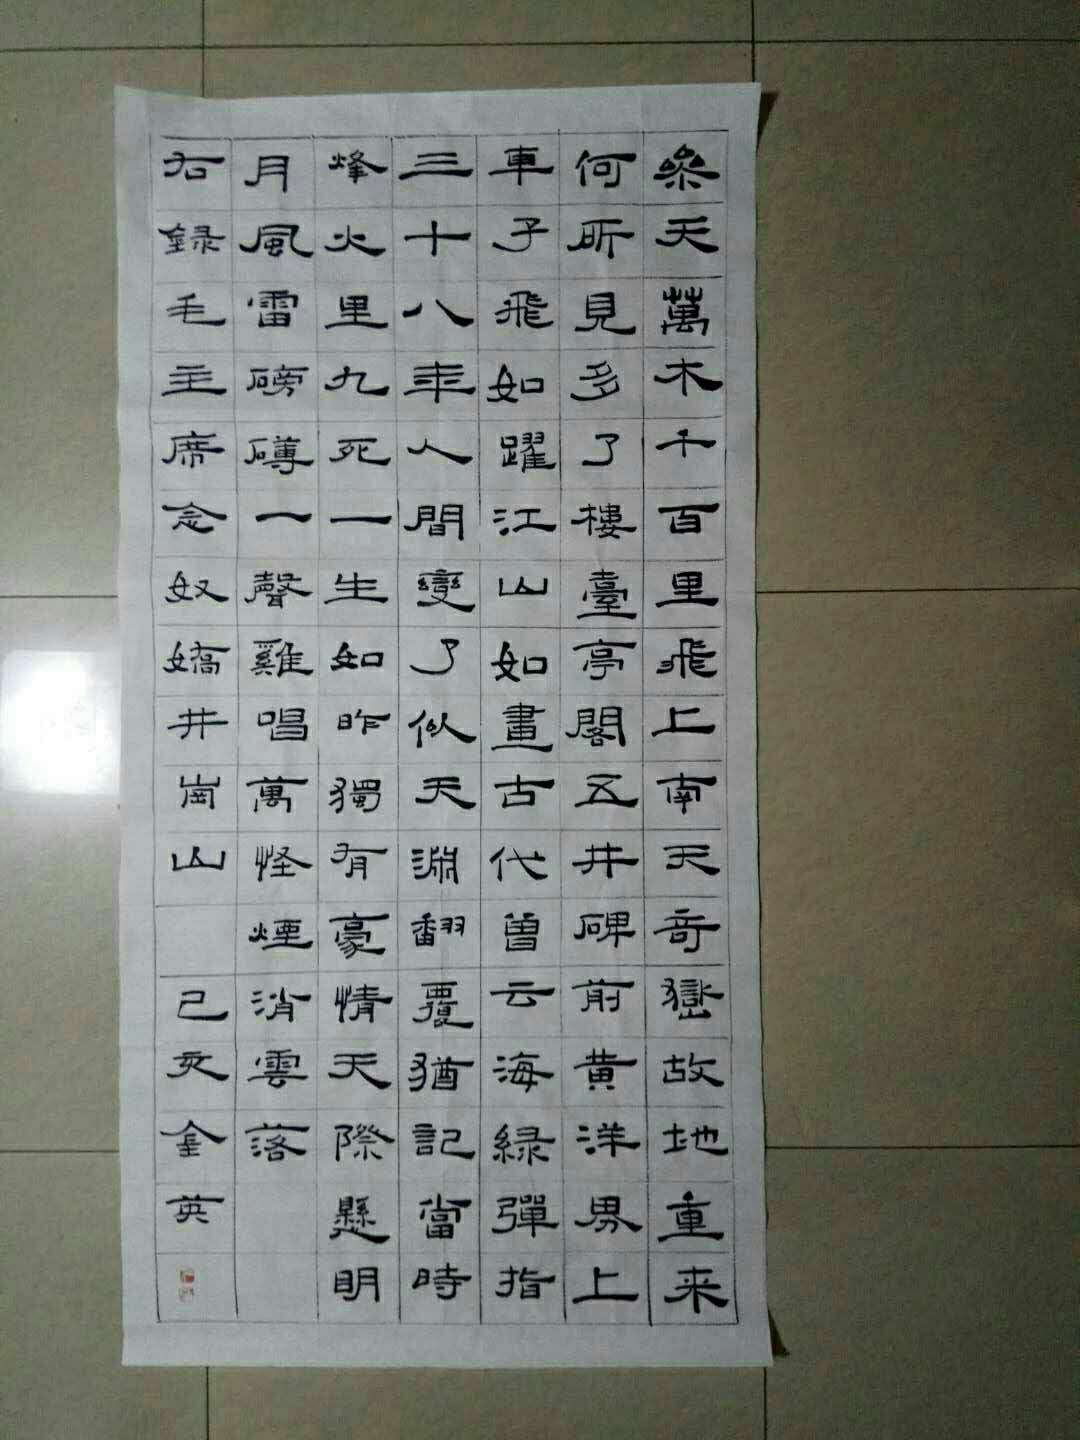 叅天萬木千百里飛上南天奇嶽故地重来
何所見多了樓臺亭閣五井碑前黄洋界上
車子飛如躍江山如畫古代曾云海緑彈指
三十八年人間變了似天淵翻覆猶記當時
烽火里九死一生如昨獨有豪情天際懸明
月風雷磅礡一聲雞唱萬怪煙消雲落
右録毛主席念奴嬌井崗山 己亥金英